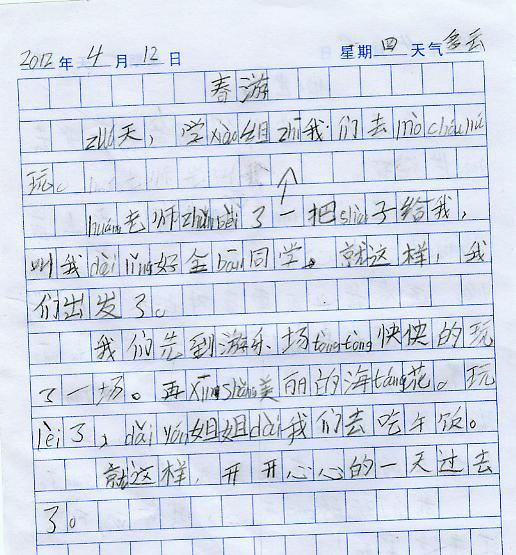 2012年4月12日 星期四 天气多云
春游
zuó天，学xiào组zhī我们去mò chóu hú
玩。
huáng老师zhǔn bèi了一把shàn子给我，
叫我dài lǐng好全bān同学。就这样，我
们出发了。
我们先到游乐场tòng tòng快快的玩
了一场。再xīn shǎng美丽的海táng花。玩
lèi了，dǎi yán姐姐dài我们去吃午饭。
就这样，开开心心的一天过去
了。